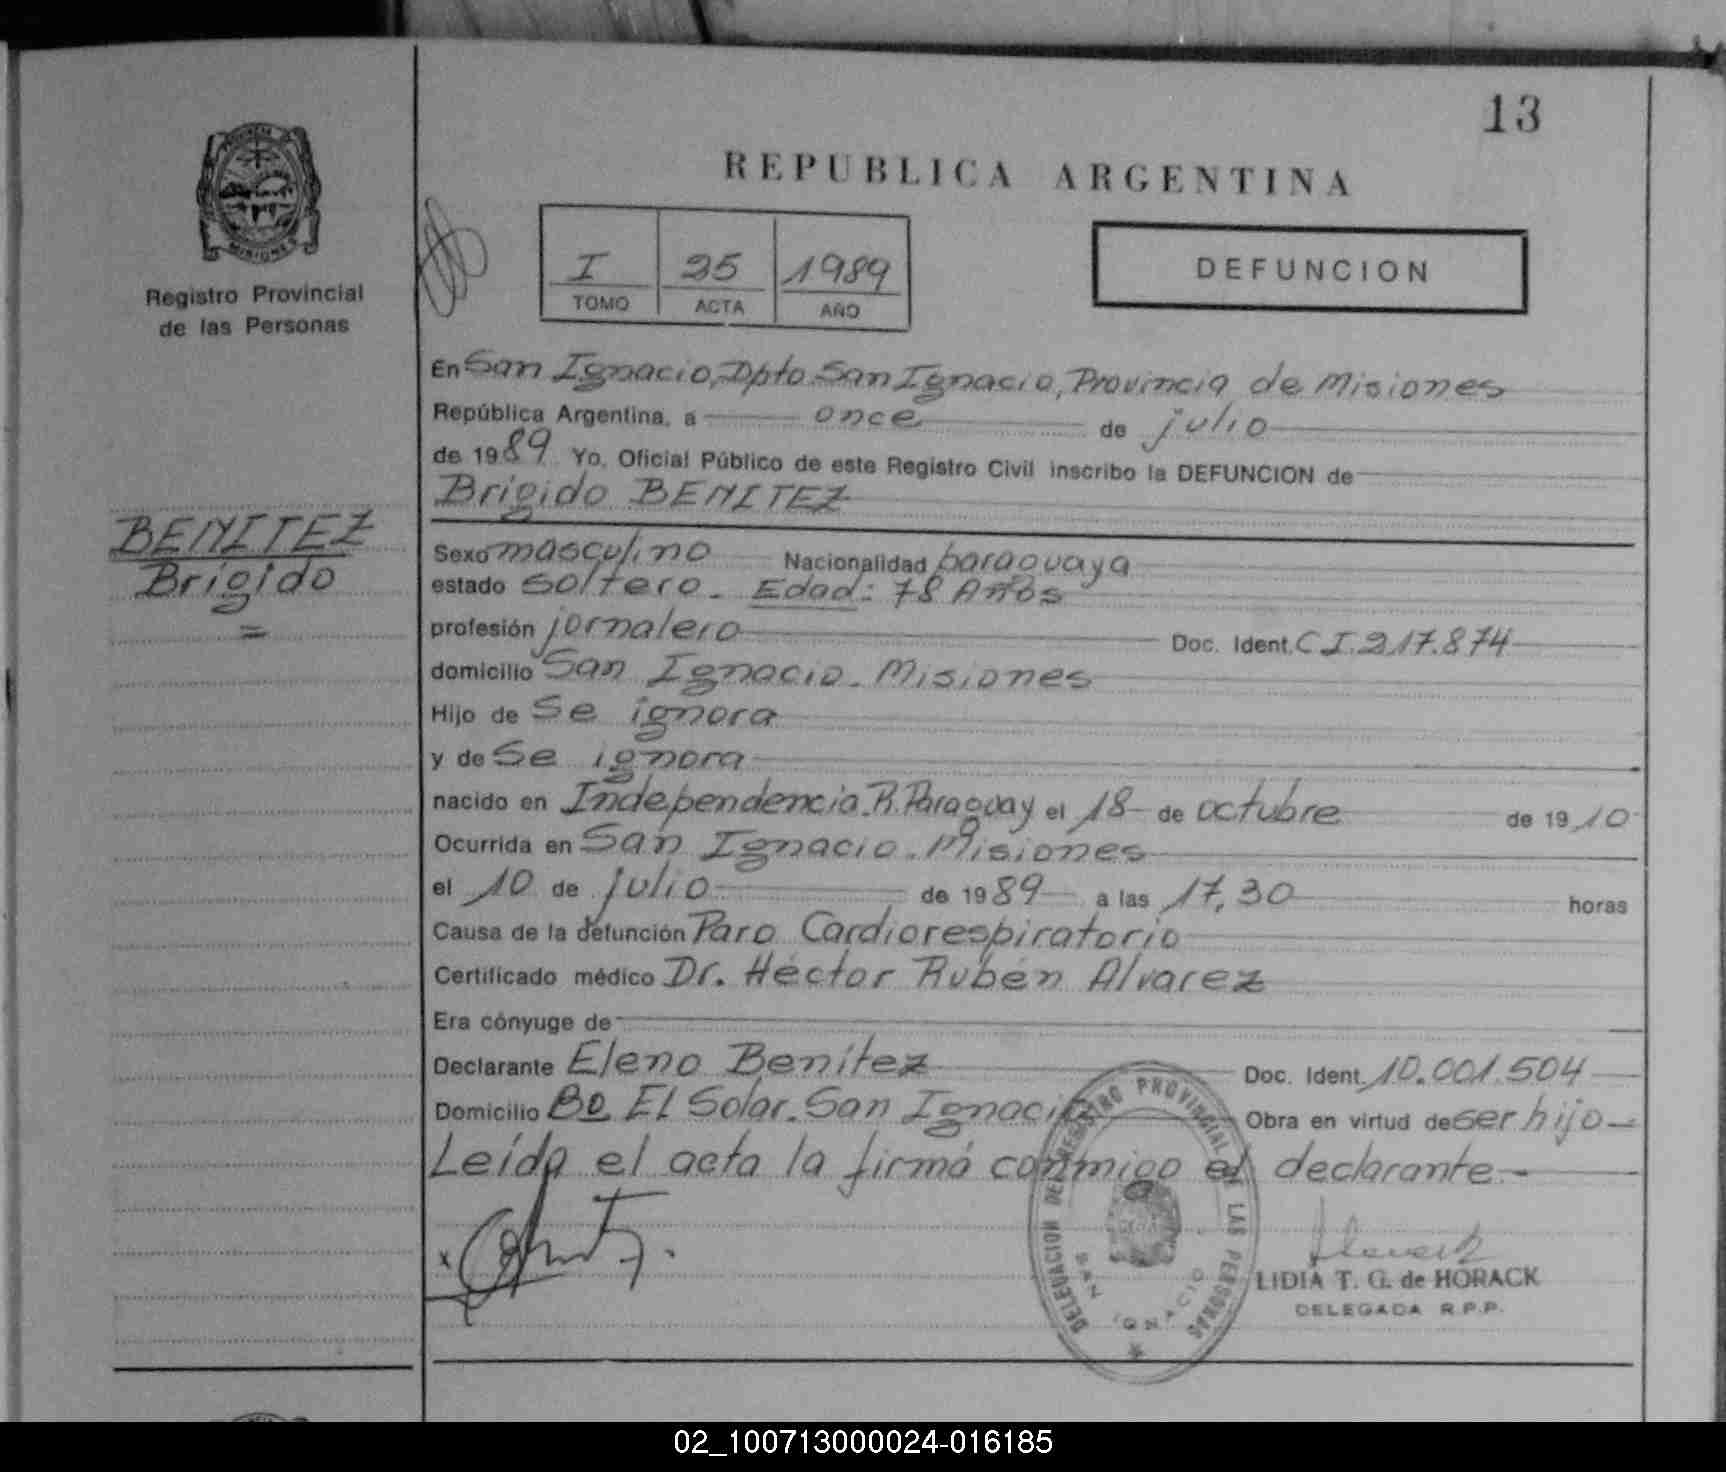 13
REPUBLICA ARGENTINA
PROVINCIA
MISIONES
Registro Provincial
de las Personas
I 25 1989
TOMO ACTA AÑO
DEFUNCION
En San Ignacio, Dpto San Ignacio, Provincia de Misiones
República Argentina, a once de julio
de 1989 Yo, Oficial Público de este Registro Civil inscribo la DEFUNCION de
Brigido BENITEZ
BENITEZ
Brigido
Sexo masculino Nacionalidad paraguaya
estado soltero. Edad: 78 Años
profesión jornalero Doc. Ident. C I. 217.874
domicilio San Ignacio. Misiones
Hijo de Se ignora
y de Se ignora
nacido en Independencia. R. Paraguay el 18 de octubre de 1910
Ocurrida en San Ignacio. Misiones
el 10 de julio de 1989 a las 17,30 horas
Causa de la defunción Paro Cardiorespiratorio
Certificado médico Dr. Héctor Rubén Alvarez
Era cónyuge de
Declarante Eleno Benítez Doc. Ident. 10.001.504
Domicilio Bo El Solar. San Ignacio Obra en virtud de ser hijo
Leída el acta la firmó conmigo el declarante.-
DELEGACION DEL REGISTRO PROVINCIAL DE LAS PERSONAS
SAN IGNACIO
LIDIA T. G. de HORACK
DELEGADA R.P.P.
02_100713000024-016185